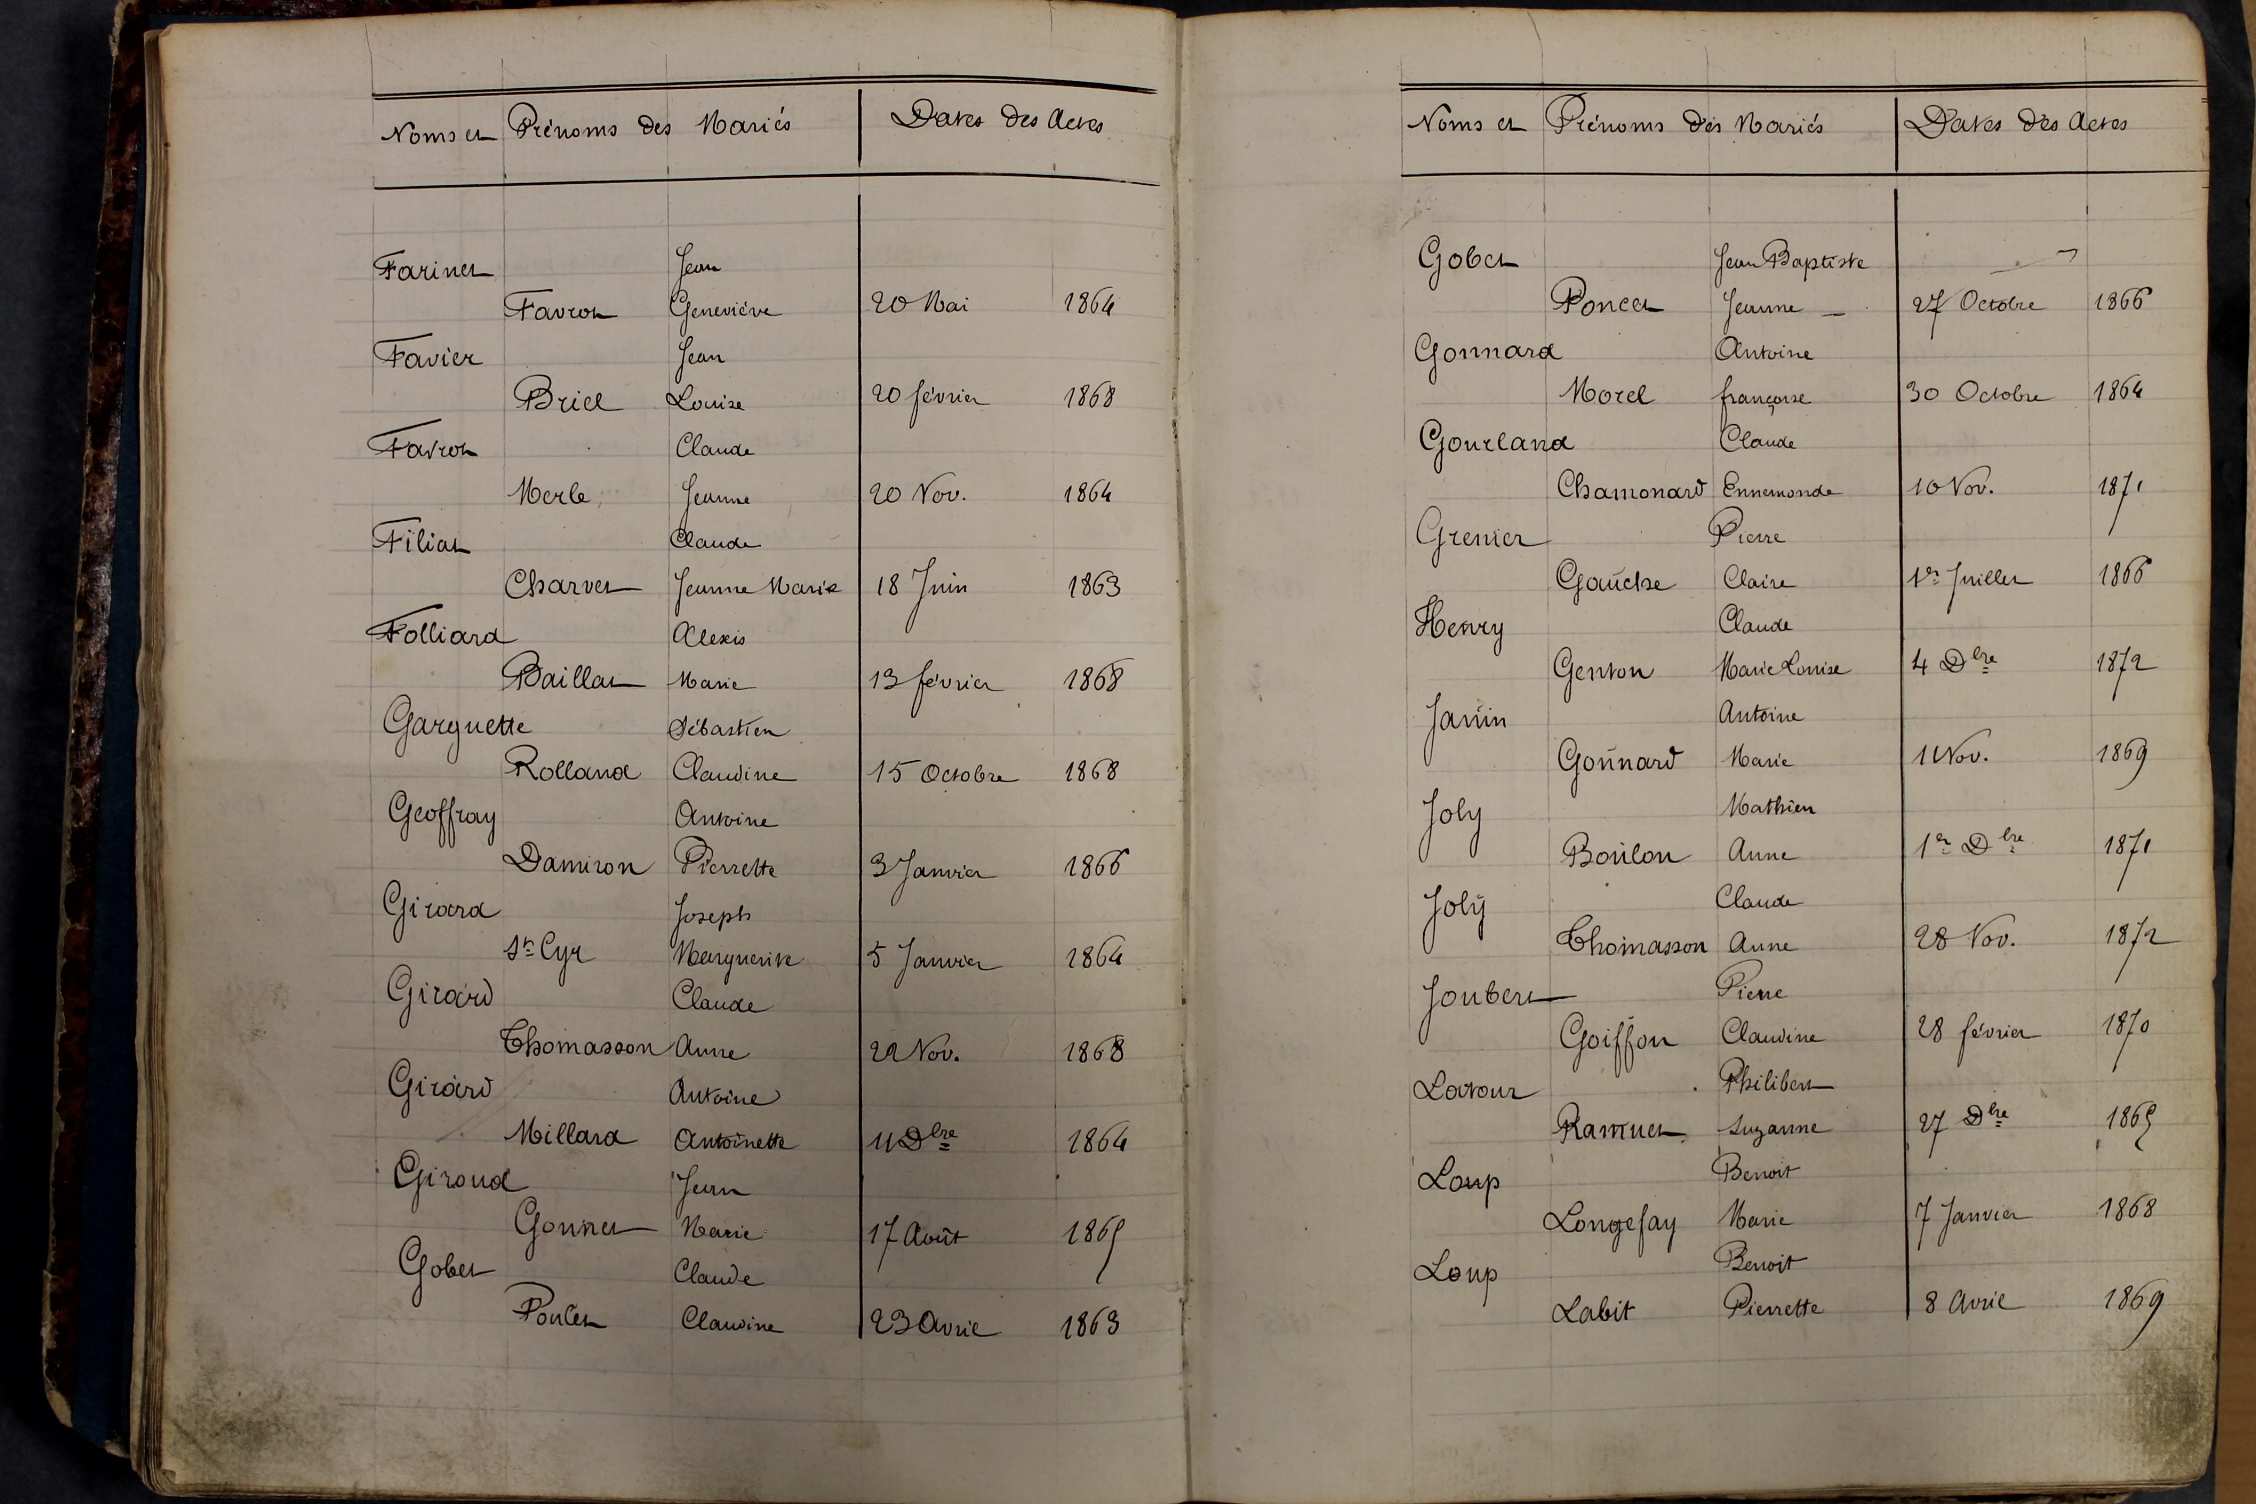 Noms et Prénoms des Mariés Dates des Actes
Farinet Jean
Favrot Geneviève 20 Mai 1864
Favier Jean
Briel Louise 20 février 1868
Favrot Claude
Merle Jeanne 20 Nov. 1864
Filiat Claude
Charvet Jeanne Marie 18 Juin 1863
Folliard Alexis
Baillat Marie 13 février 1868
Garguette Sébastien
Rolland Claudine 15 Octobre 1868
Geoffray Antoine
Damiron Pierrette 3 Janvier 1866
Girard Joseph
St Cyr Marguerite 5 Janvier 1864
Girard Claude
Thomasson Anne 22 Nov. 1868
Girard Antoine
Millard Antoinette 11 Dbre 1864
Giroud Jean
Gonnet Marie 17 Août 1865
Gobet Claude
Poncet Claudine 23 Avril 1863
Noms et Prénoms des Mariés Dates des Actes
Gobet Jean Baptiste
Poncet Jeanne 27 Octobre 1866
Gonnard Antoine
Morel françoise 30 Octobre 1864
Gourland Claude
Chamonard Ennemonde 10 Nov. 1871
Grenier Pierre
Gauche Claire 1er Juillet 1866
Henry Claude
Genton Marie Louise 4 Dbre 1872
Janin Antoine
Gonnard Marie 11 Nov. 1869
Joly Mathieu
Boulon Anne 1er Dbre 1871
Joly Claude
Thomasson Anne 28 Nov. 1872
Joubert Pierre
Goiffon Claudine 28 février 1870
Latour Philibert
Ramuet Suzanne 27 Dbre 1865
Loup Benoit
Longefay Marie 7 Janvier 1868
Loup Benoit
Labit Pierrette 8 Avril 1869